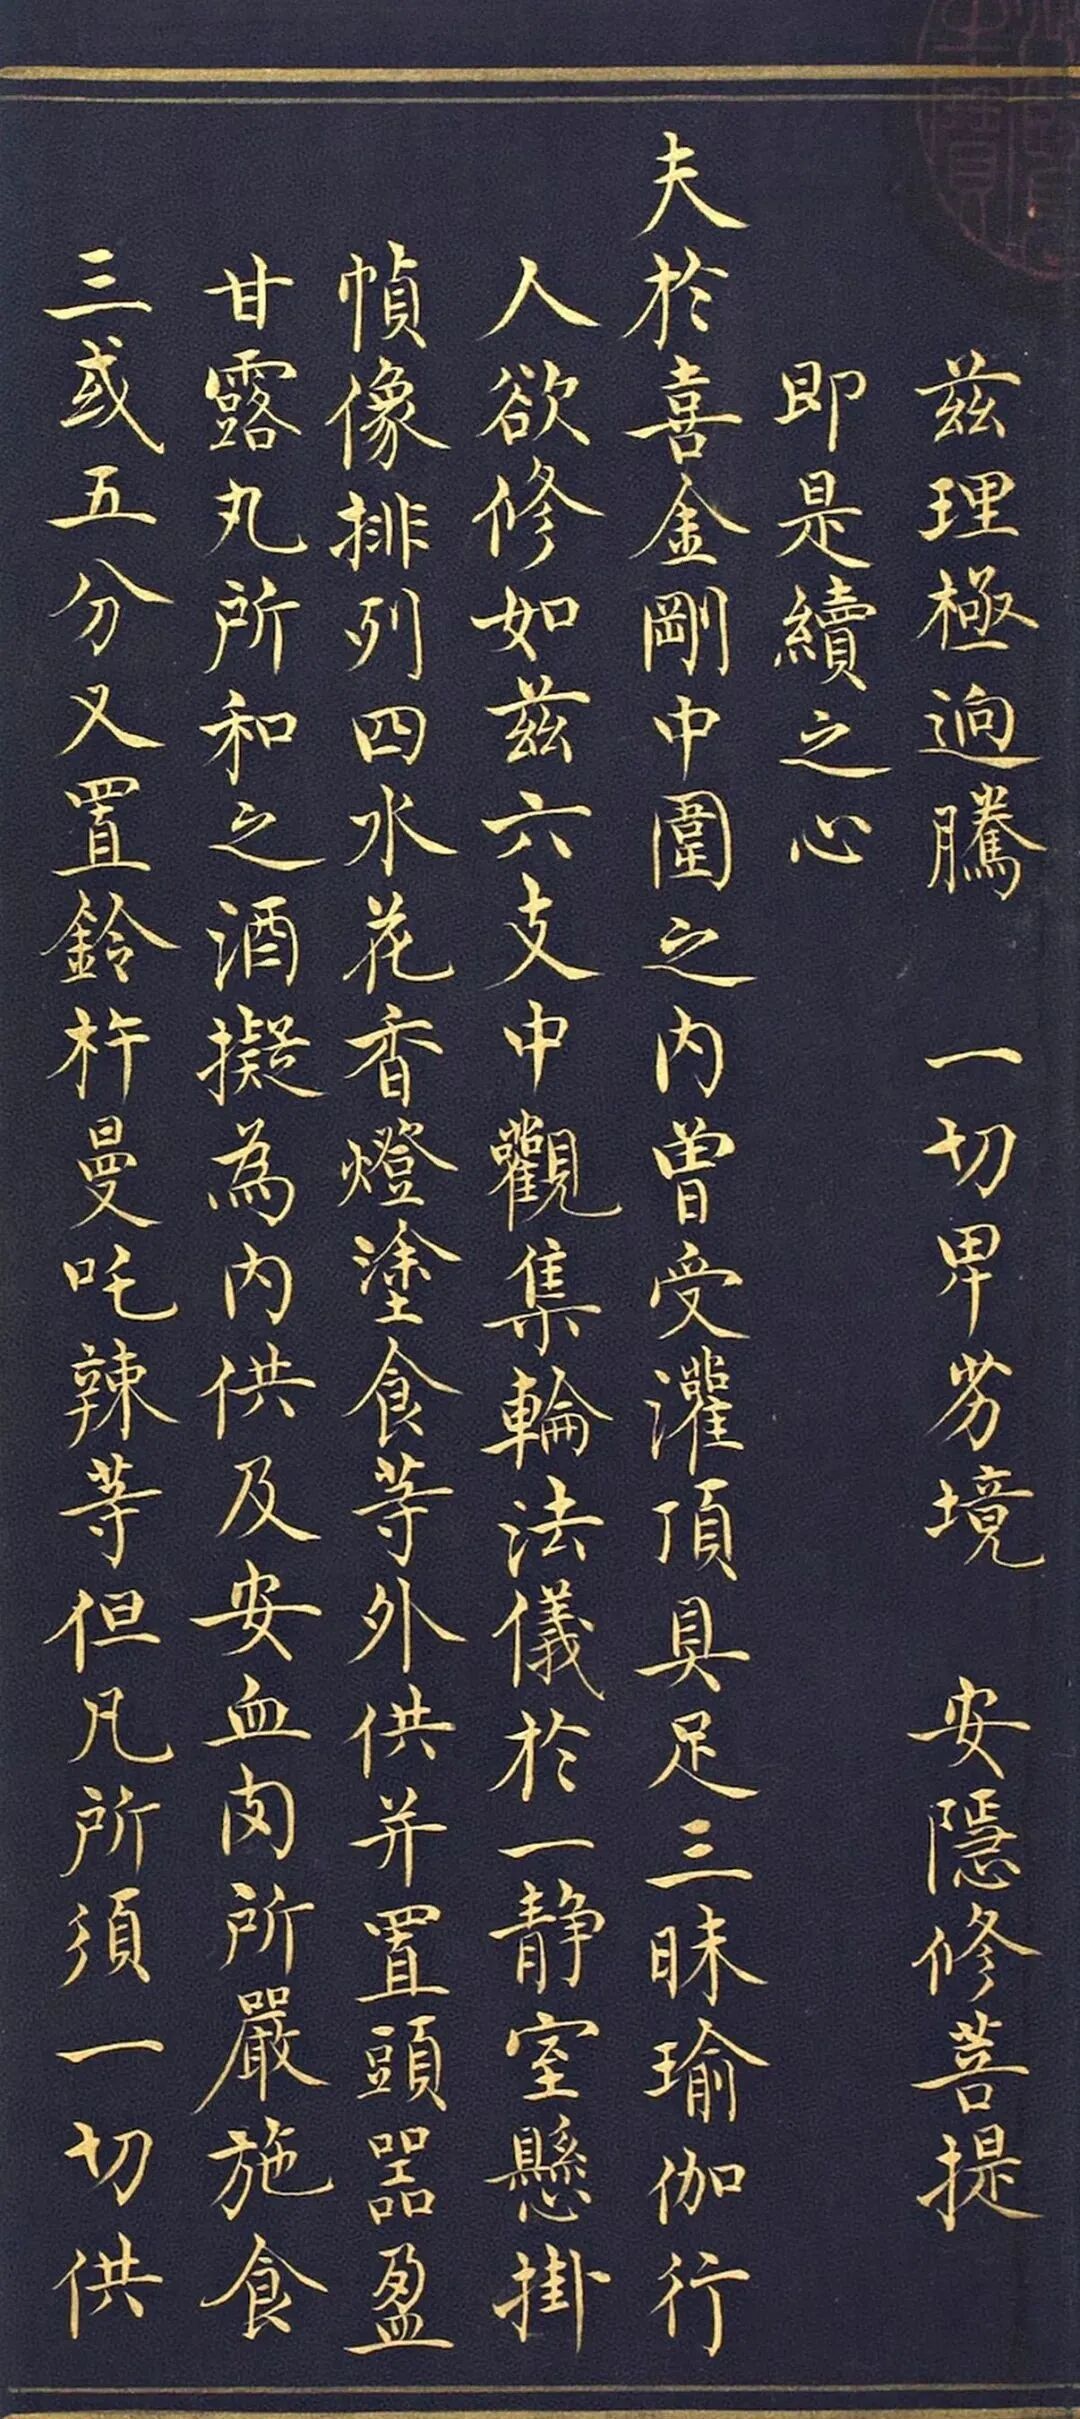 茲理極逈騰　一切卑劣境　安隱修菩提
即是續之心
夫於喜金剛中圍之內曾受灌頂具足三昧瑜伽行
人欲修如茲六支中觀集輪法儀於一靜室懸掛
幀像排列四水花香燈塗食等外供并置頭器盈
甘露丸所和之酒擬為內供及安血肉所嚴施食
三或五分又置鈴杵曼吒辣等但凡所須一切供